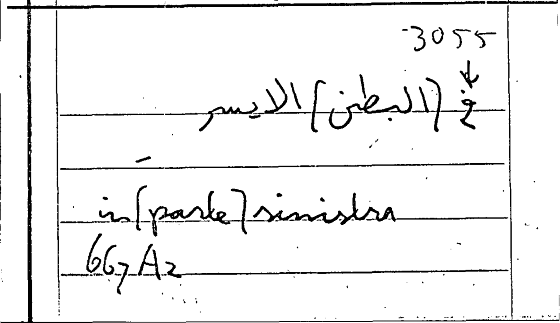 3055
↓
في [البطن] الايسر
in [parte] sinistra
667 A2